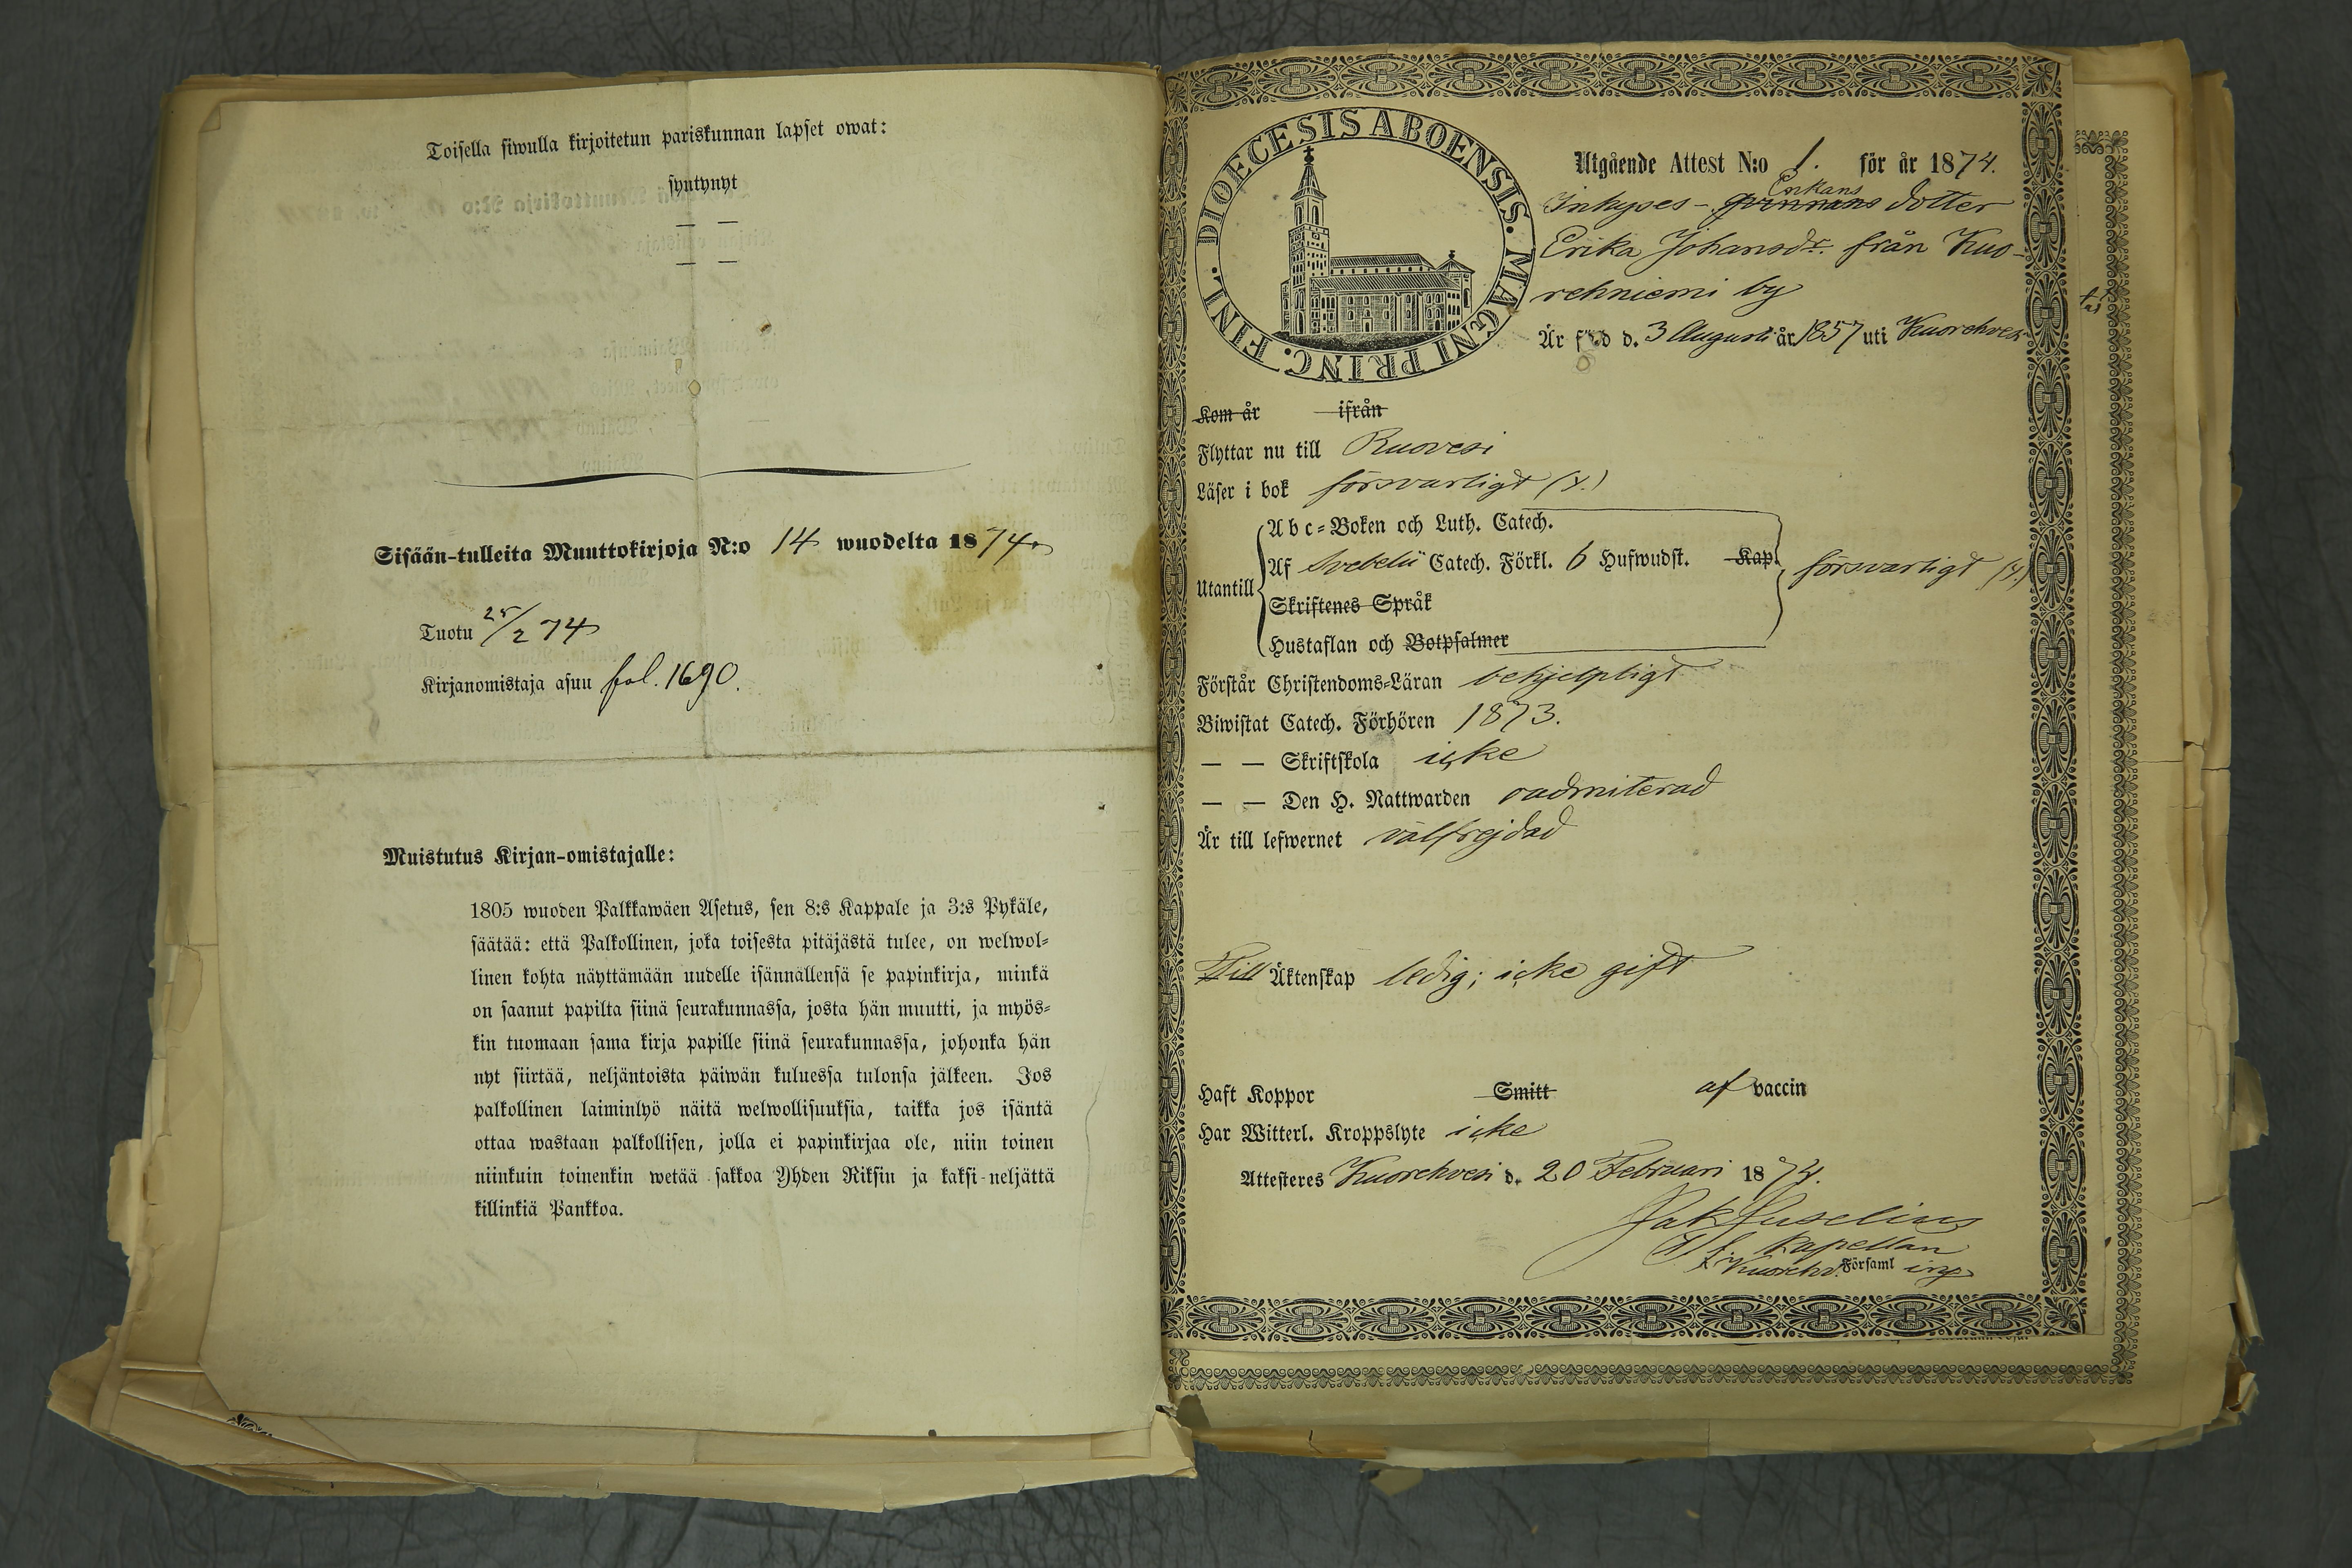 Toisella siwulla kirjoitetun pariskunnan lapset owat:
syntynyt
— —
— —
Sisään-tulleita Muuttokirjoja N:o 14 wuodelta 1874.
Tuotu 25/2 74
Kirjanomistaja asuu fol. 1690.
Muistutus Kirjan-omistajalle:
1805 wuoden Palkkawäen Asetus, sen 8:s Kappale ja 3:s Pykäle,
säätää: että Palkollinen, joka toisesta pitäjästä tulee, on welwol-
linen kohta näyttämään uudelle isännällensä se papinkirja, minkä
on saanut papilta siinä seurakunnassa, josta hän muutti, ja myös-
kin tuomaan sama kirja papille siinä seurakunnassa, johonka hän
nyt siirtää, neljäntoista päiwän kuluessa tulonsa jälkeen. Jos
palkollinen laiminlyö näitä welwollisuuksia, taikka jos isäntä
ottaa wastaan palkollisen, jolla ei papinkirjaa ole, niin toinen
niinkuin toinenkin wetää sakkoa Yhden Riksin ja kaksi-neljättä
killinkiä Pankkoa.
DIOECESIS ABOENSIS. MAGNI PRINC. FINL.
Utgående Attest N:o 1. för år 1874.
Enkans
Inhyses- qvinnans dotter
Erika Johansdr. från Kuo-
rehniemi by
Är född d. 3 Augusti år 1857 uti Kuorehvesi
Kom år ifrån
Flyttar nu till Ruovesi
Läser i bok försvarligt (y.)
Abc-Boken och Luth. Catech.
Utantill Af Svebelii Catech. Förkl. 6 Hufwudst. Kap. försvarligt (y.)
Skriftenes Språk
Hustaflan och Botpsalmer
Förstår Christendoms-Läran behjelpligt
Biwistat Catech. Förhören 1873.
— — Skriftskola icke
— — Den H. Nattwarden oadmiterad
Är till lefwernet välfrejdad
Till Äktenskap ledig; icke gift
Haft Koppor Smitt af vaccin
Har Witterl. Kroppslyte icke
Attesteres Kuorehvesi d. 20 Februari 1874.
Kapellan
Kuorehv. Församl ing